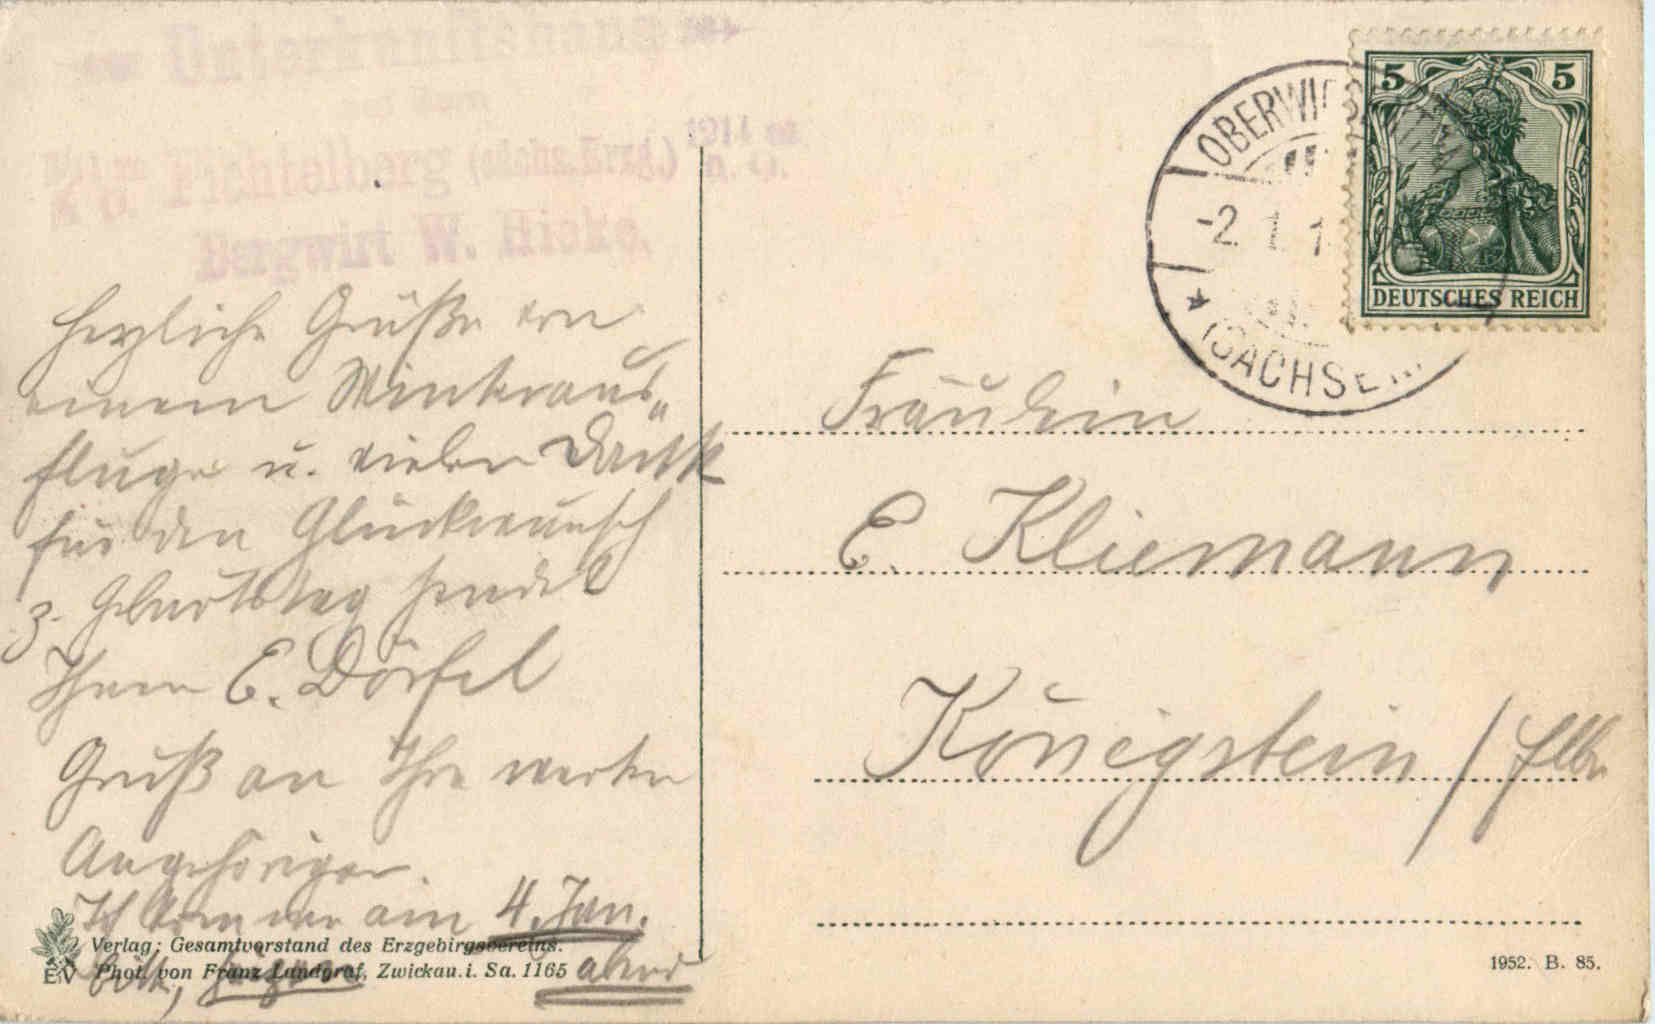 Unterkunftshaus
auf dem
Fichtelberg (sächs. Erzg.) 1214 m
ü. O.
Bergwirt W. Hieke.
Herzliche Grüße von
einem Winteraus-
fluge u. vielen Dank
für den Glückwunsch
z. Geburtstag sendet
Ihnen E. Dörfel
Gruß an Ihre werten
Angehörigen.
Ich komme am 4. Jan.
abend
Verlag: Gesamtvorstand des Erzgebirgsvereins.
EV Phot. von Franz Landgraf, Zwickau i. Sa. 1165
OBERWIESENTHAL
-2. 1. 1
(SACHSEN)
5 5
DEUTSCHES REICH
Fräulein
E. Kliemann
Königstein / Elbe
1952. B. 85.